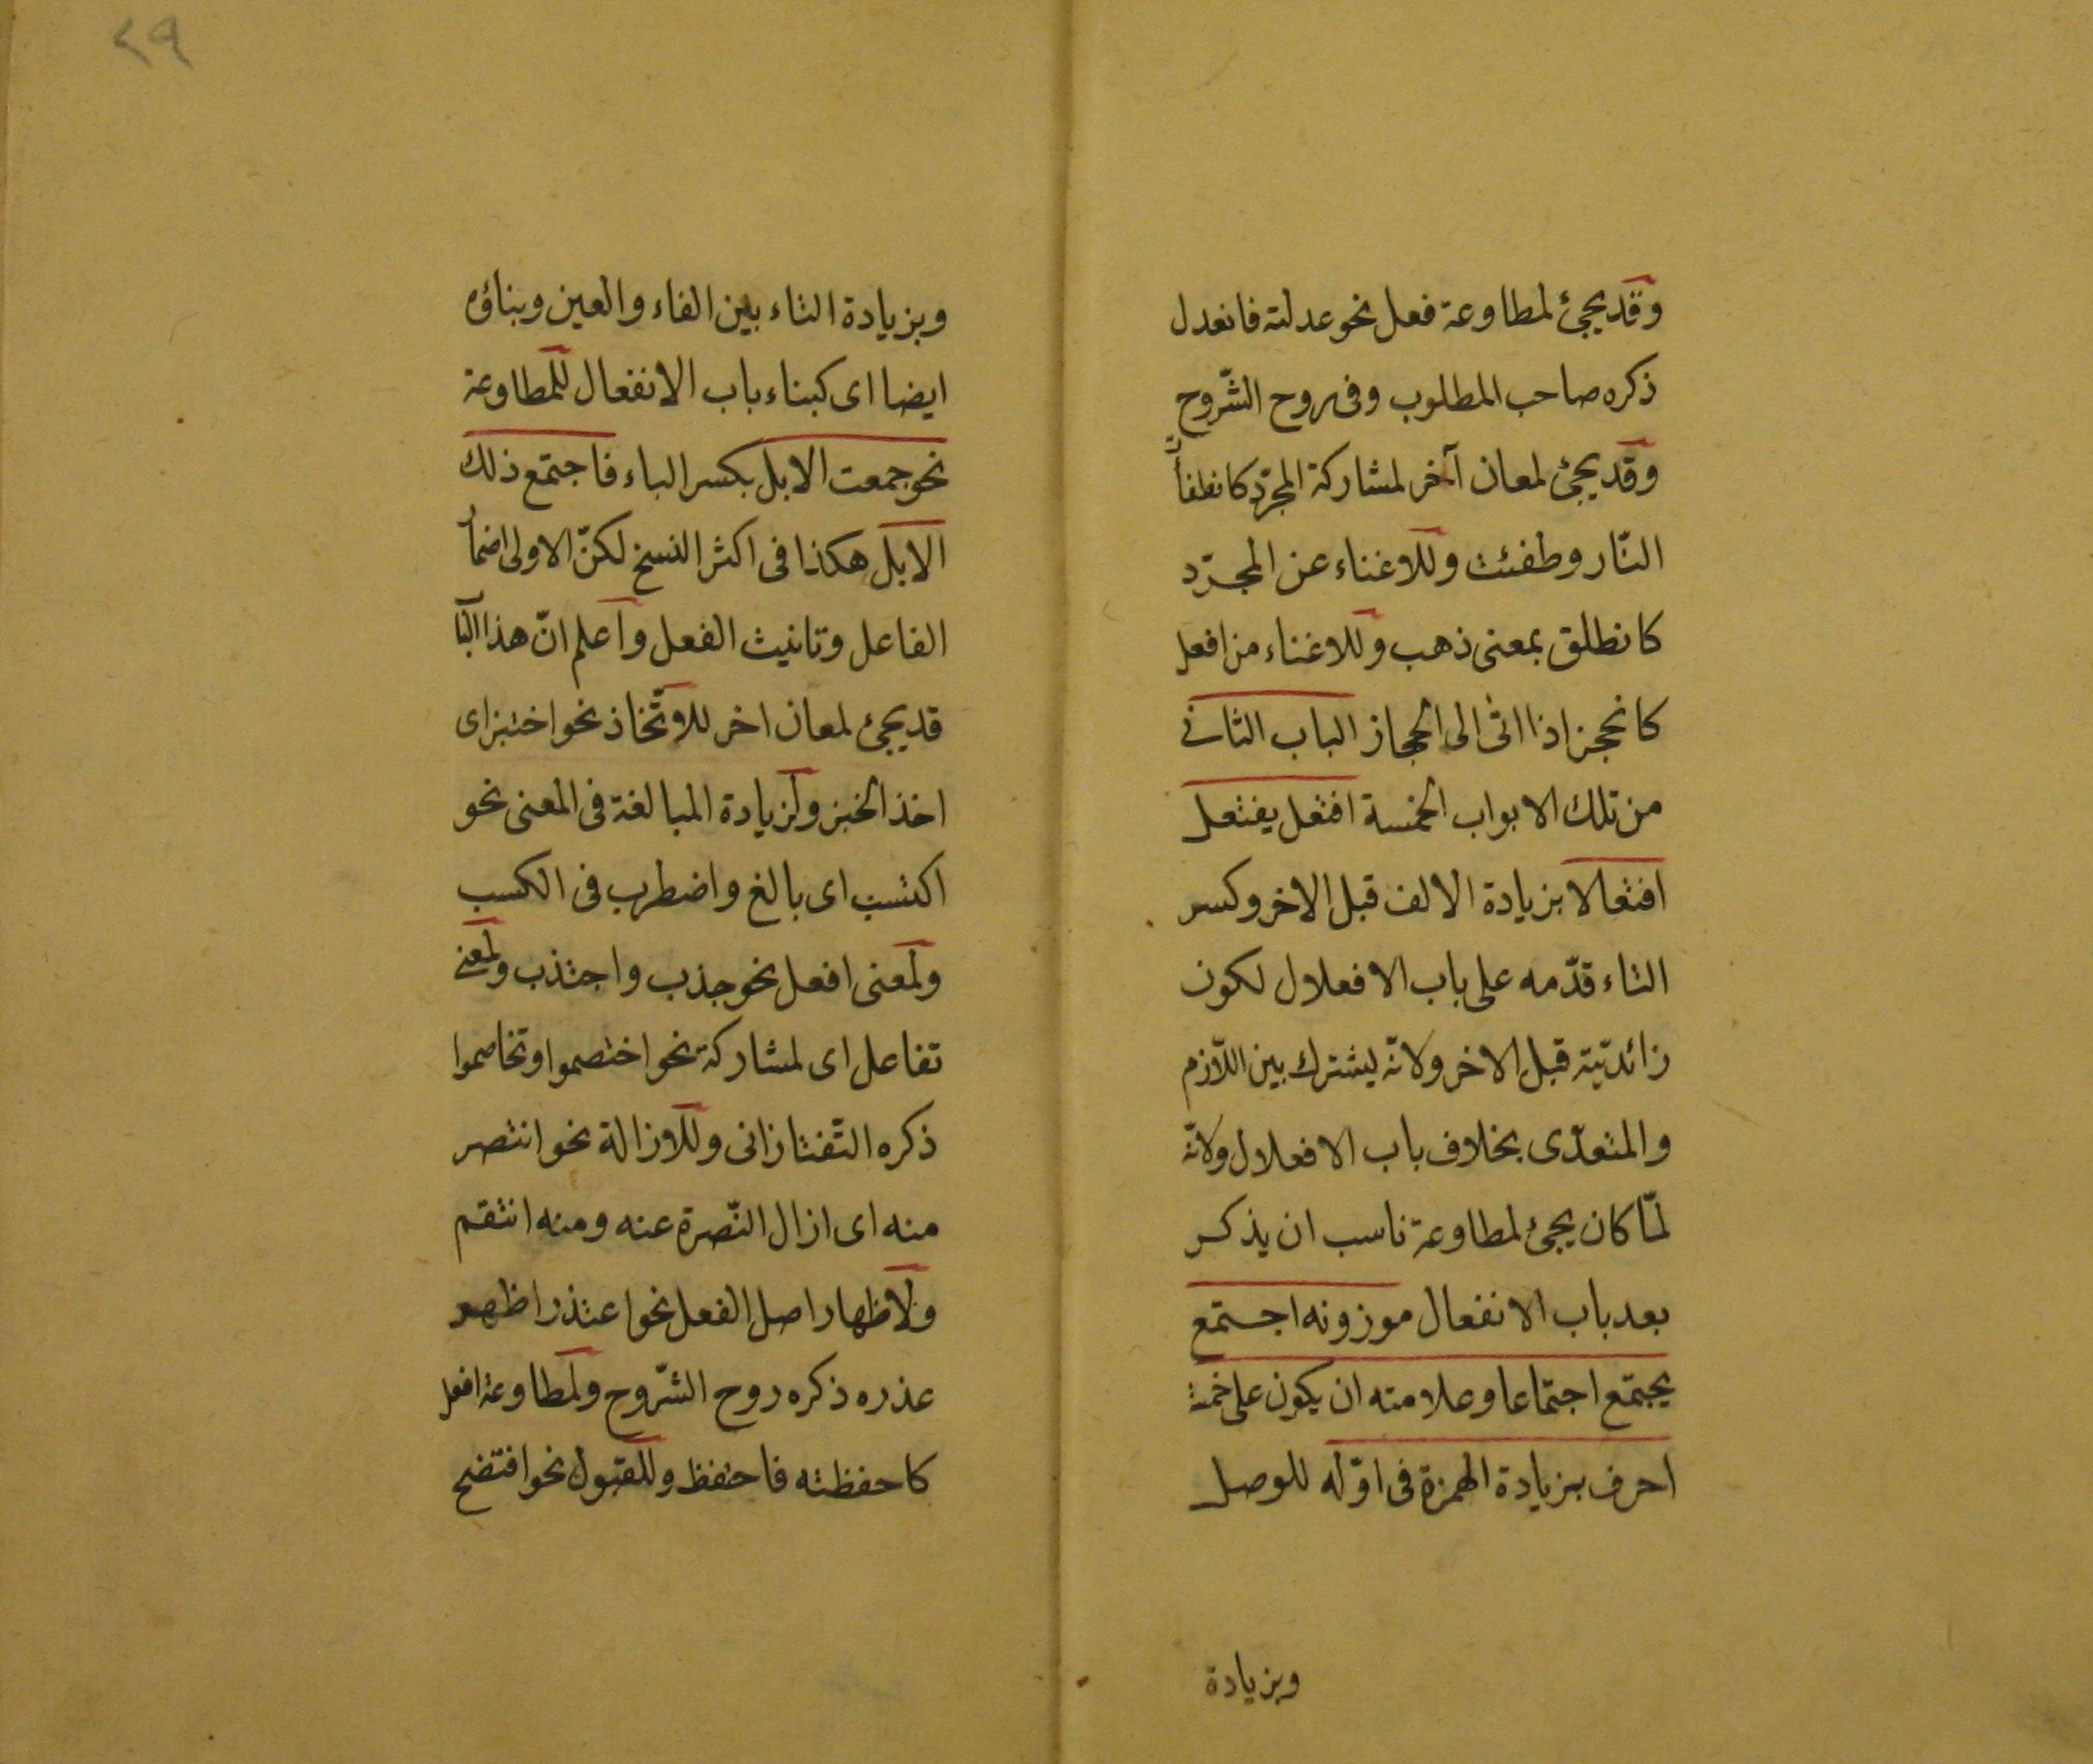 وقد يجئ لمطاوعة فعل نحو عدلته فانعدل
ذكره صاحب المطلوب وفى روح الشّروح
وقد يجئ لمعان آخر لمشاركة المجرّد كانطفأت
النّار وطفئت وللاغناء عن المجرّد
كانطلق بمعنى ذهب وللاغناء من افعل
كانحجز اذا اتى الى الحجاز الباب الثانى
من تلك الابواب الخمسة افتعل يفتعل
افتعالا بزيادة الالف قبل الاخر وكسر
التاء قدّمه على باب الافعلال لكون
زائدتيّه قبل الاخر ولانّه ليشترك بين اللّازم
والمتعدّى بخلاف باب الافعلال ولانّه
لمّا كان يجئ لمطاوعة ناسب ان يذكر
بعد باب الانفعال موزونه اجتمع
يجتمع اجتماعا وعلامته ان يكون على خمسة
احرف بزيادة الهمزة فى اوّله للوصل
وبزيادة
٢٩
وبزيادة التاء بين الفاء والعين وبناؤه
ايضا اى كبناء باب الانفعال للمطاوعة
نحو جمعت الابل بكسر الباء فاجتمع ذلك
الابل هكذا فى اكثر النسخ لكنّ الاولى اضمار
الفاعل وتانيث الفعل واعلم انّ هذا الباب
قد يجئ لمعان اخر للاتّخاذ نحو اختبز اى
اخذ الخبز ولزيادة المبالغة فى المعنى نحو
اكتسب اى بالغ واضطرب فى الكسب
ولمعنى افعل نحو جذب واجتذب ولمعنى
تفاعل اى لمشاركة نحو اختصموا وتخاصموا
ذكره التّفتازانى وللازالة نحو انتصر
منه اى ازال النّصرة عنه ومنه انتقم
ولاظهار اصل الفعل نحو اعتذر اظهر
عذره ذكره روح الشّروح ولمطاوعة افعل
كاحفظته فاحتفظ وللقبول نحو افتضح